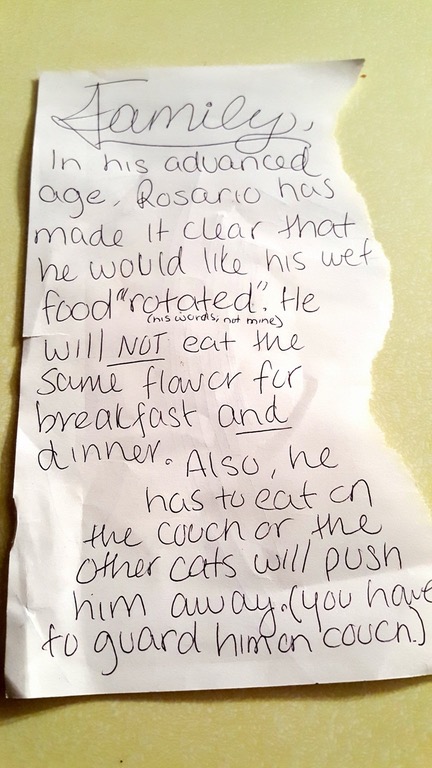 Family,
In his advanced
age, Rosario has
made it clear that
he would like his wet
food "rotated". He
(his words, not mine)
will NOT eat the
same flavor for
breakfast and
dinner. Also, he
has to eat on
the couch or the
other cats will push
him away. (you have
to guard him on couch.)